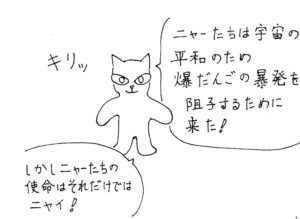 ニャーたちは宇宙の
平和のため
爆だんごの暴発を
阻子するために
来た!
キリッ
しかしニャーたちの
使命はそれだけでは
ニャイ!